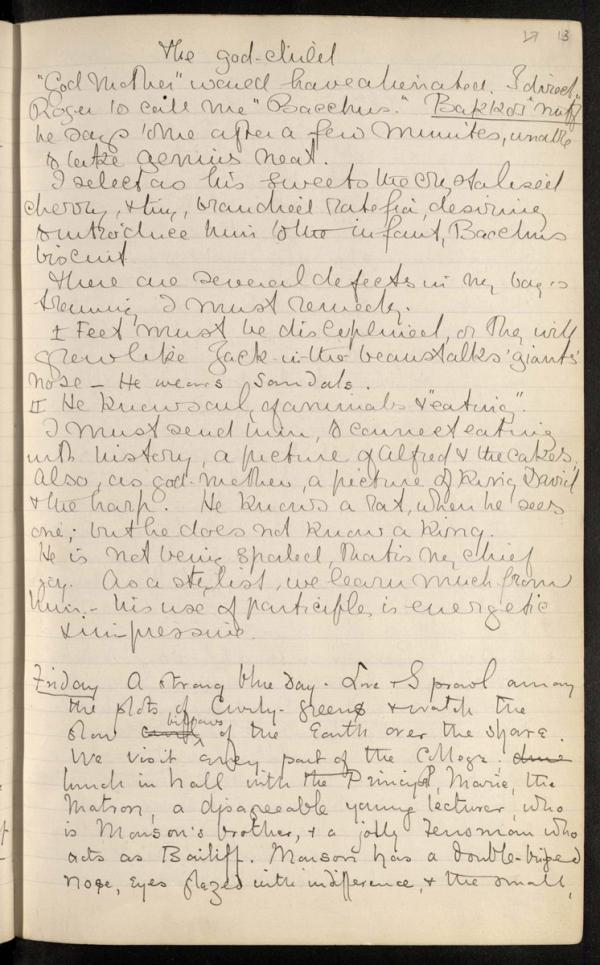 13
The god-child
"God Mother" would have alienated. I direct
Roger to call me "Bacchus." "Bakkos' nuff"
he says to me after a few minutes, unable
to take genius neat.
I select as his sweets the crystalised
cherry, & tiny, brandied ratefia, desiring
to introduce him to the infant, Bacchus
biscuit
There are several defects in my boy's
training I must remedy.
I Feet must be disciplined, or they will
grow like Jack-in-the beanstalks' giants'
nose — He wears Sandals.
II He knows only of animals & "eating".
I must send him, to connect eating
with history, a picture of Alfred & the cakes.
Also, as god-mother, a picture of King David
& the harp. He knows a rat, when he sees
one; but he does not know a king.
He is not being spoiled, that is my chief
joy. As a stylist, we learn much from
him — his use of participles is energetic
& impressive.
Friday A strong blue Day. Love & I prowl among
the plots of Curly-greens & watch the
slow of the Earth over the share.
We visit every part of the College.
lunch in hall with the Principal, Marie, the
Matron, a disagreeable young lecturer, who
is Monson's brother, & a jolly Tenoman who
acts as Bailiff. Monson has a double-bridged
nose, eyes glazed with indifference, & the small,